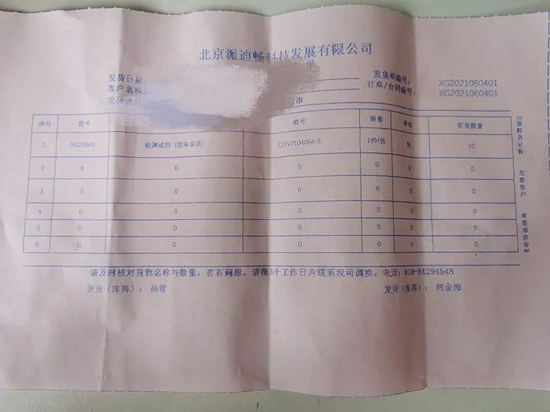 北京派迪畅科技发展有限公司
单
发货日期: 发货单编号: XG2021060401
客户名称: 订单/合同编号: XG2021060401
市
序号 货号 批号 规格 单位 实发数量
1 XG2008I 检测试剂 COV2104004-S 1份/包 包 10
2 0 0 0 0 0 0
3 0 0 0 0 0 0
4 0 0 0 0 0 0
5 0 0 0 0 0 0
6 0 0 0 0 0 0
请及时核对货物名称与数量，若有问题，请在3个工作日内联系我司调换。电话：010-84294548
发货（库房）： 孙常 发货（库房）： 何金梅